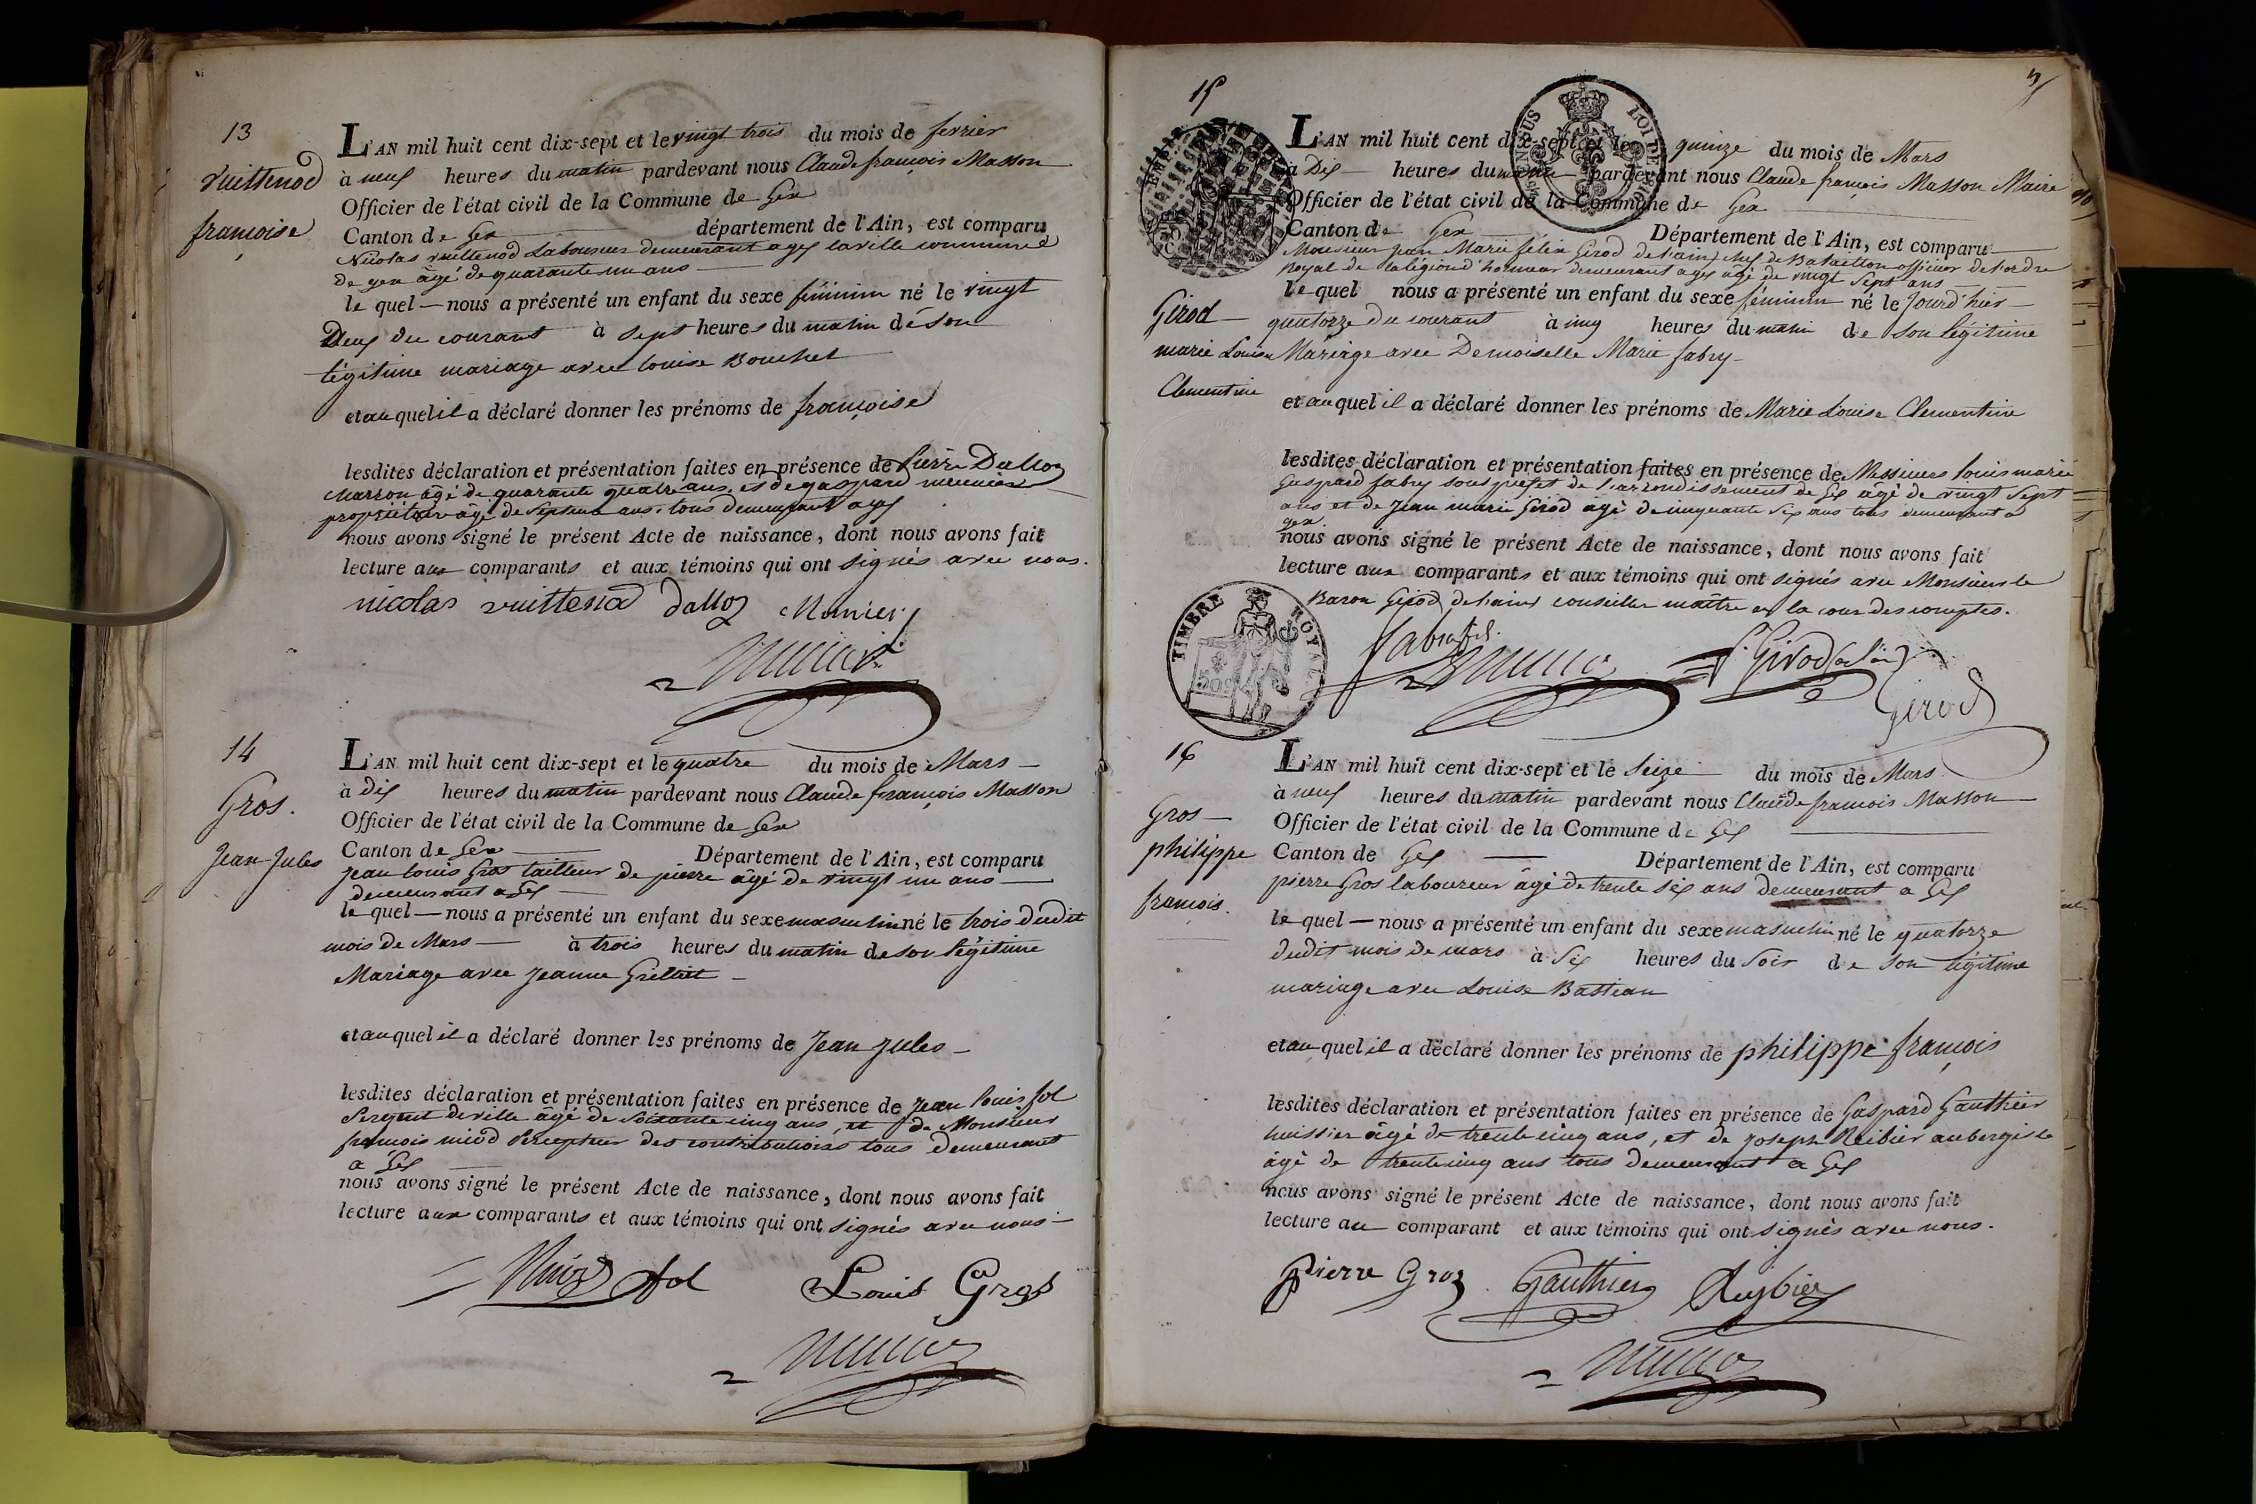 13
Vuittenod
françoise
L'AN mil huit cent dix-sept et le vingt trois du mois de fevrier
à neuf heures du matin pardevant nous Claude françois Masson
Officier de l'état civil de la Commune de Gex
Canton de Gex département de l'Ain, est comparu
Nicolas vuittenod Laboureur demeurant a gex la ville commune
de gex âgé de quarante un ans
le quel nous a présenté un enfant du sexe féminin né le vingt
Deux du courant à sept heures du matin de son
légitime mariage avec louise Bouchet
et auquel il a déclaré donner les prénoms de françoise
lesdites déclaration et présentation faites en présence de Pierre Dalloz
Marron âgé de quarante quatre ans, et de gaspard meunier
propriétaire âgé de Septante ans, tous demeurant a gex
nous avons signé le présent Acte de naissance, dont nous avons fait
lecture aux comparants et aux témoins qui ont signés avec nous.
nicolas vuittenod dalloz Munier
14
Gros.
Jean Jules
L'AN mil huit cent dix-sept et le quatre du mois de Mars
à dix heures du matin pardevant nous Claude françois Masson
Officier de l'état civil de la Commune de Gex
Canton de Gex Département de l'Ain, est comparu
Jean louis Gros tailleur de pierre âgé de vingt un ans
demeurant a Gex
le quel nous a présenté un enfant du sexe masculin né le trois dudit
mois de Mars à trois heures du matin de son légitime
Mariage avec Jeanne
et auquel il a déclaré donner les prénoms de Jean Jules
lesdites déclaration et présentation faites en présence de Jean louis fol
Sergent de ville âgé de Soixante cinq ans, et de Monsieur
françois Percepteur des contributions tous demeurant
a Gex
nous avons signé le présent Acte de naissance, dont nous avons fait
lecture aux comparants et aux témoins qui ont signés avec nous
fol Louis Gros
15
5
TIMBRE ROYAL
LOI DE 1816
Girod
marie Louise
Clementine
L'AN mil huit cent dix-sept et le quinze du mois de Mars
à Dix heures du matin pardevant nous Claude françois Masson Maire
Officier de l'état civil de la Commune de Gex
Canton de Gex Département de l'Ain, est comparu
Monsieur jean Marie félix Girod de l'ain, chef de Bataillon officier de l'ordre
Royal de la légion d'honneur demeurant a gex âgé de vingt Sept ans
le quel nous a présenté un enfant du sexe féminin né le Jourd'hier
quatorze du courant à cinq heures du matin de son légitime
Mariage avec Demoiselle Marie fabry
et auquel il a déclaré donner les prénoms de Marie Louise Clementine
lesdites déclaration et présentation faites en présence de Messieurs louis marie
Gaspard fabry sous préfet de l'arrondissement de Gex âgé de vingt Sept
ans et de Jean marie Girod âgé de cinquante Six ans tous demeurant a
gex.
nous avons signé le présent Acte de naissance, dont nous avons fait
lecture aux comparants et aux témoins qui ont signés avec Monsieur le
Baron Girod de l'ain, conseiller maître en la cour des comptes.
f. Girod (de l'ain)
Girod
16
Gros
philippe
françois.
L'AN mil huit cent dix-sept et le Seize du mois de Mars
à neuf heures du matin pardevant nous Claude francois Masson
Officier de l'état civil de la Commune de Gex
Canton de Gex Département de l'Ain, est comparu
pierre Gros laboureur âgé de trente six ans demeurant a Gex
le quel nous a présenté un enfant du sexe masculin né le quatorze
dudit mois de mars à Six heures du Soir de son légitime
mariage avec Louise Bastian
et auquel il a déclaré donner les prénoms de philippe françois
lesdites déclaration et présentation faites en présence de Gaspard Gauthier
huissier âgé de trente cinq ans, et de joseph Reibier aubergiste
âgé de trente cinq ans tous demeurant a Gex
nous avons signé le présent Acte de naissance, dont nous avons fait
lecture au comparant et aux témoins qui ont signés avec nous.
Pierre Groz Gauthier Reybier